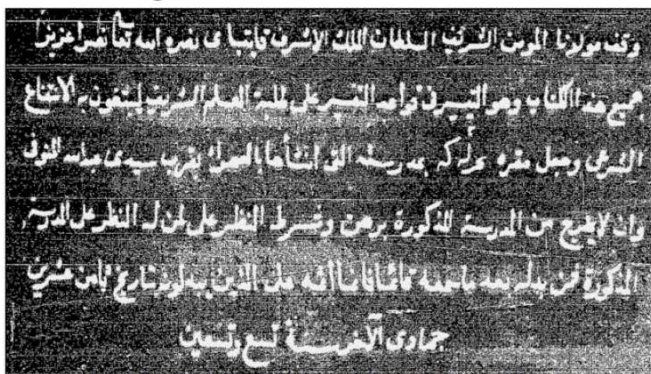 وقف مولانا المومن الشريف السلطان الملك الاشرف قايتباى نصره الله تعا نصرا عزيزا
جميع هذا الكتاب وهو التيسير فى قواعد التفسير على طلبة العلم الشريف لينتفعون به الانتفاع
الشرعى وجعل مقره بمدرسته التى انشأها بالصحرا بقرب سيدى عبد الله المنوفى
وان لا يخرج من المدرسة المذكورة برهن وشرط النظر على لمن له النظر على المدرسة
المذكورة فمن بدله بعد ما سمعه فانما اثمه على الذين يبدلونه بتاريخ ثامن عشرين
جمادى الآخر سنة تسع وسبعين